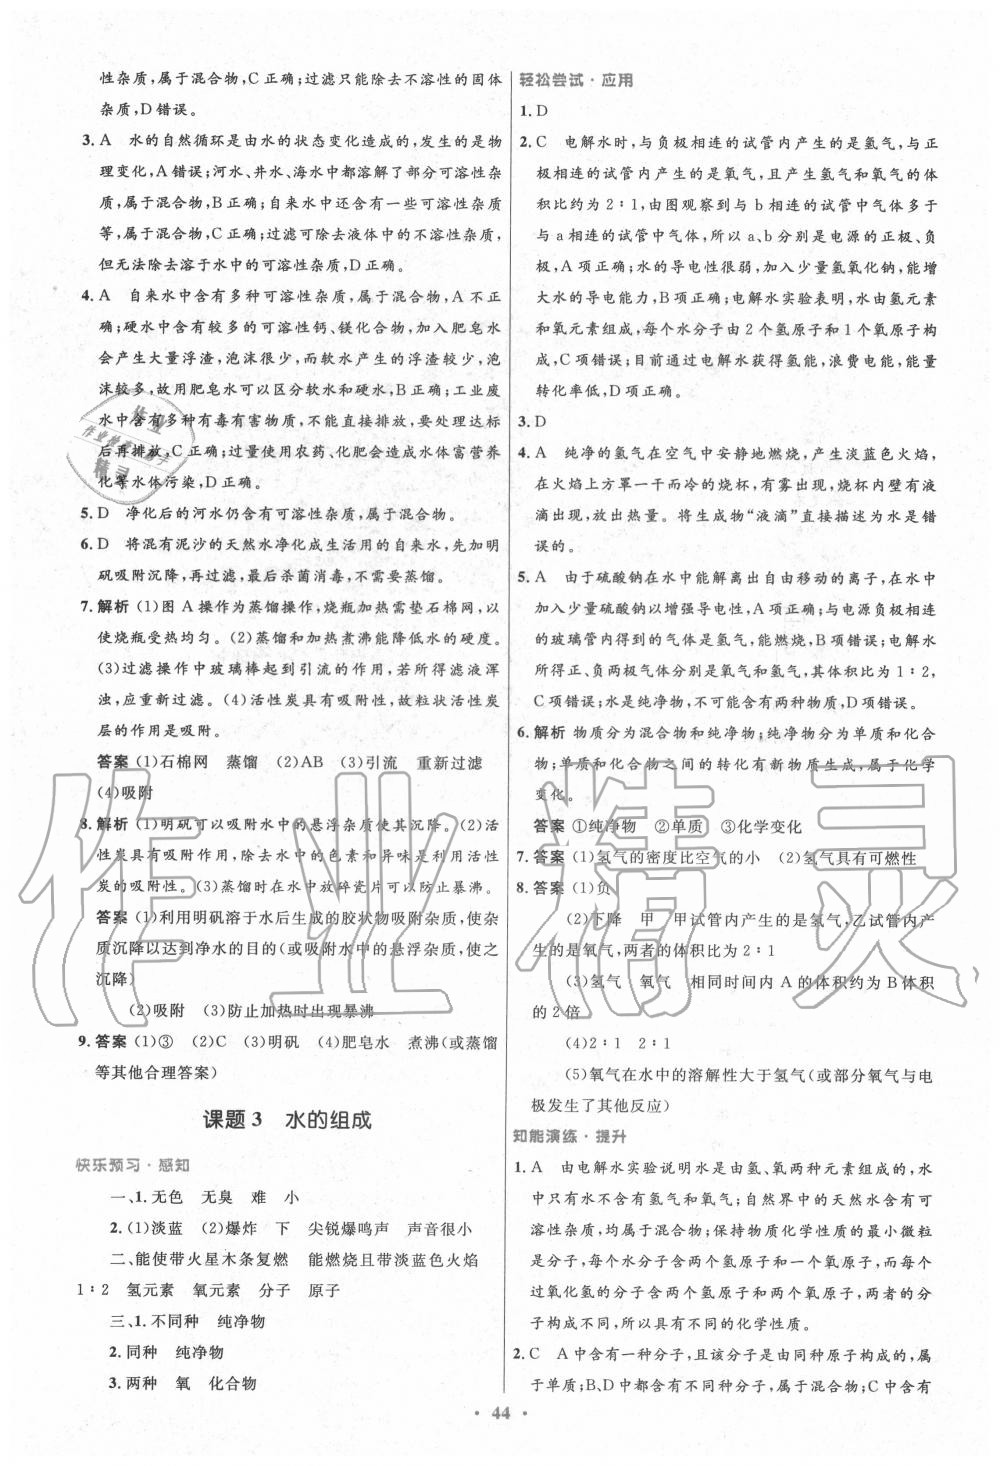 性杂质,属于混合物,C正确;过滤只能除去不溶性的固体
杂质,D错误。
3.A 水的自然循环是由水的状态变化造成的,发生的是物
理变化,A错误;河水、井水、海水中都溶解了许多可溶性杂
质,属于混合物,B正确;自来水中还含有一些可溶性杂质
等,属于混合物,C正确;过滤可除去液体中的不溶性杂质,
但无法除去溶于水中的可溶性杂质,D正确。
4.A 自来水中含有多种可溶性杂质,属于混合物,A不正
确;硬水中含有较多的可溶性钙、镁化合物,加入肥皂水
会产生大量浮渣,泡沫很少,而软水产生的浮渣较少,泡
沫较多,故用肥皂水可以区分软水和硬水,B正确;工业废
水中含有多种有毒有害物质,不能直接排放,要处理达标
后再排放,C正确;大量使用农药、化肥会造成水体富营养
化等水体污染,D正确。
5.D 净化后的河水仍含有可溶性杂质,属于混合物。
6.D 将混有泥沙的天然水净化成生活用的自来水,先加明
矾吸附沉降,再过滤,最后杀菌消毒,不需要蒸馏。
7.解析 (1)图A操作为蒸馏操作,烧瓶加热需垫石棉网,以
使烧瓶受热均匀。(2)蒸馏和加热煮沸能降低水的硬度。
(3)过滤操作中玻璃棒起到引流的作用,若所得滤液浑
浊,应重新过滤。(4)活性炭具有吸附性,故粒状活性炭
层的作用是吸附。
答案 (1)石棉网 蒸馏 (2)AB (3)引流 重新过滤
(4)吸附
8.解析 (1)明矾可以吸附水中的悬浮杂质使其沉降。(2)活
性炭具有吸附作用,除去水中的色素和异味是利用活性
炭的吸附性。(3)蒸馏时在水中放碎瓷片可以防止暴沸。
答案 (1)利用明矾溶于水后生成的胶状物吸附杂质,使杂
质沉降以达到净水的目的(或吸附水中的悬浮杂质,使之
沉降)
(2)吸附 (3)防止加热时出现暴沸
9.答案 (1)③ (2)C (3)明矾 (4)肥皂水 煮沸(或蒸馏
等其他合理答案)
课题3 水的组成
快乐预习·感知
一、1.无色 无臭 难 小
2.(1)淡蓝 (2)爆炸 下 尖锐爆鸣声 声音很小
二、能使带火星木条复燃 能燃烧且带淡蓝色火焰
1∶2 氢元素 氧元素 分子 原子
三、1.不同种 纯净物
2.同种 纯净物
3.两种 氧 化合物
轻松尝试·应用
1.D
2.C 电解水时,与负极相连的试管内产生的是氢气,与正
极相连的试管内产生的是氧气,且产生氢气和氧气的体
积比约为2∶1,由图观察到与b相连的试管中气体多于
与a相连的试管中气体,所以a、b分别是电源的正极、负
极,A项正确;水的导电性很弱,加入少量氢氧化钠,能增
大水的导电能力,B项正确;电解水实验表明,水由氢元素
和氧元素组成,每个水分子由2个氢原子和1个氧原子构
成,C项错误;目前通过电解水获得氢能,浪费电能,能量
转化率低,D项正确。
3.D
4.A 纯净的氢气在空气中安静地燃烧,产生淡蓝色火焰,
在火焰上方罩一干而冷的烧杯,有雾出现,烧杯内壁有液
滴出现,放出热量。将生成物“液滴”直接描述为水是错
误的。
5.A 由于硫酸钠在水中能解离出自由移动的离子,在水中
加入少量硫酸钠以增强导电性,A项正确;与电源负极相连
的玻璃管内得到的气体是氢气,能燃烧,B项错误;电解水
所得正、负两极气体分别是氧气和氢气,其体积比是1∶2,
C项错误;水是纯净物,不可能含有两种物质,D项错误。
6.解析 物质分为混合物和纯净物;纯净物分为单质和化合
物;单质和化合物之间的转化有新物质生成,属于化学
变化。
答案 ①纯净物 ②单质 ③化学变化
7.答案 (1)氢气的密度比空气的小 (2)氢气具有可燃性
8.答案 (1)负
(2)下降 甲 甲试管内产生的是氢气,乙试管内产
生的是氧气,两者的体积比为2∶1
(3)氢气 氧气 相同时间内A的体积约为B体积
的2倍
(4)2∶1 2∶1
(5)氧气在水中的溶解性大于氢气(或部分氧气与电
极发生了其他反应)
知能演练·提升
1.A 由电解水实验说明水是由氢、氧两种元素组成的,水
中只含有水不含有氢气和氧气;自然界中的天然水含有可
溶性杂质,均属于混合物;保持物质化学性质的最小微粒
是分子,每个水分子中含有两个氢原子和一个氧原子,而
过氧化氢的分子中含有两个氢原子和两个氧原子,两者的分
子构成不同,所以具有不同的化学性质。
2.C A中含有一种分子,且该分子是由同种原子构成的,
属于单质;B、D中含有不同种分子,属于混合物;C中含有
· 44 ·
作业
作业检查小助手
精灵
作业精灵